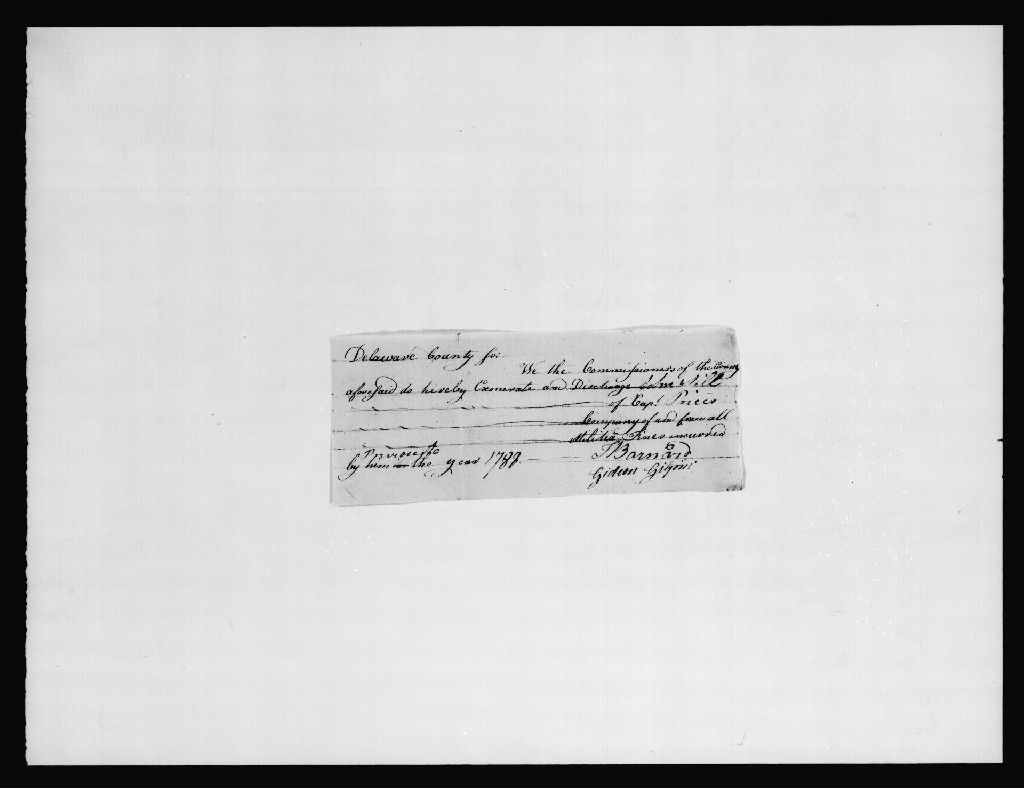 Delaware County ss:
We the Commissioners of the County
aforesaid do hereby Exonerate and Discharge
of Capt. Prices
Company of and from all
Militia Fines incurred
previous to
by him in the year 1788
J Barnard
Gideon Gilpin